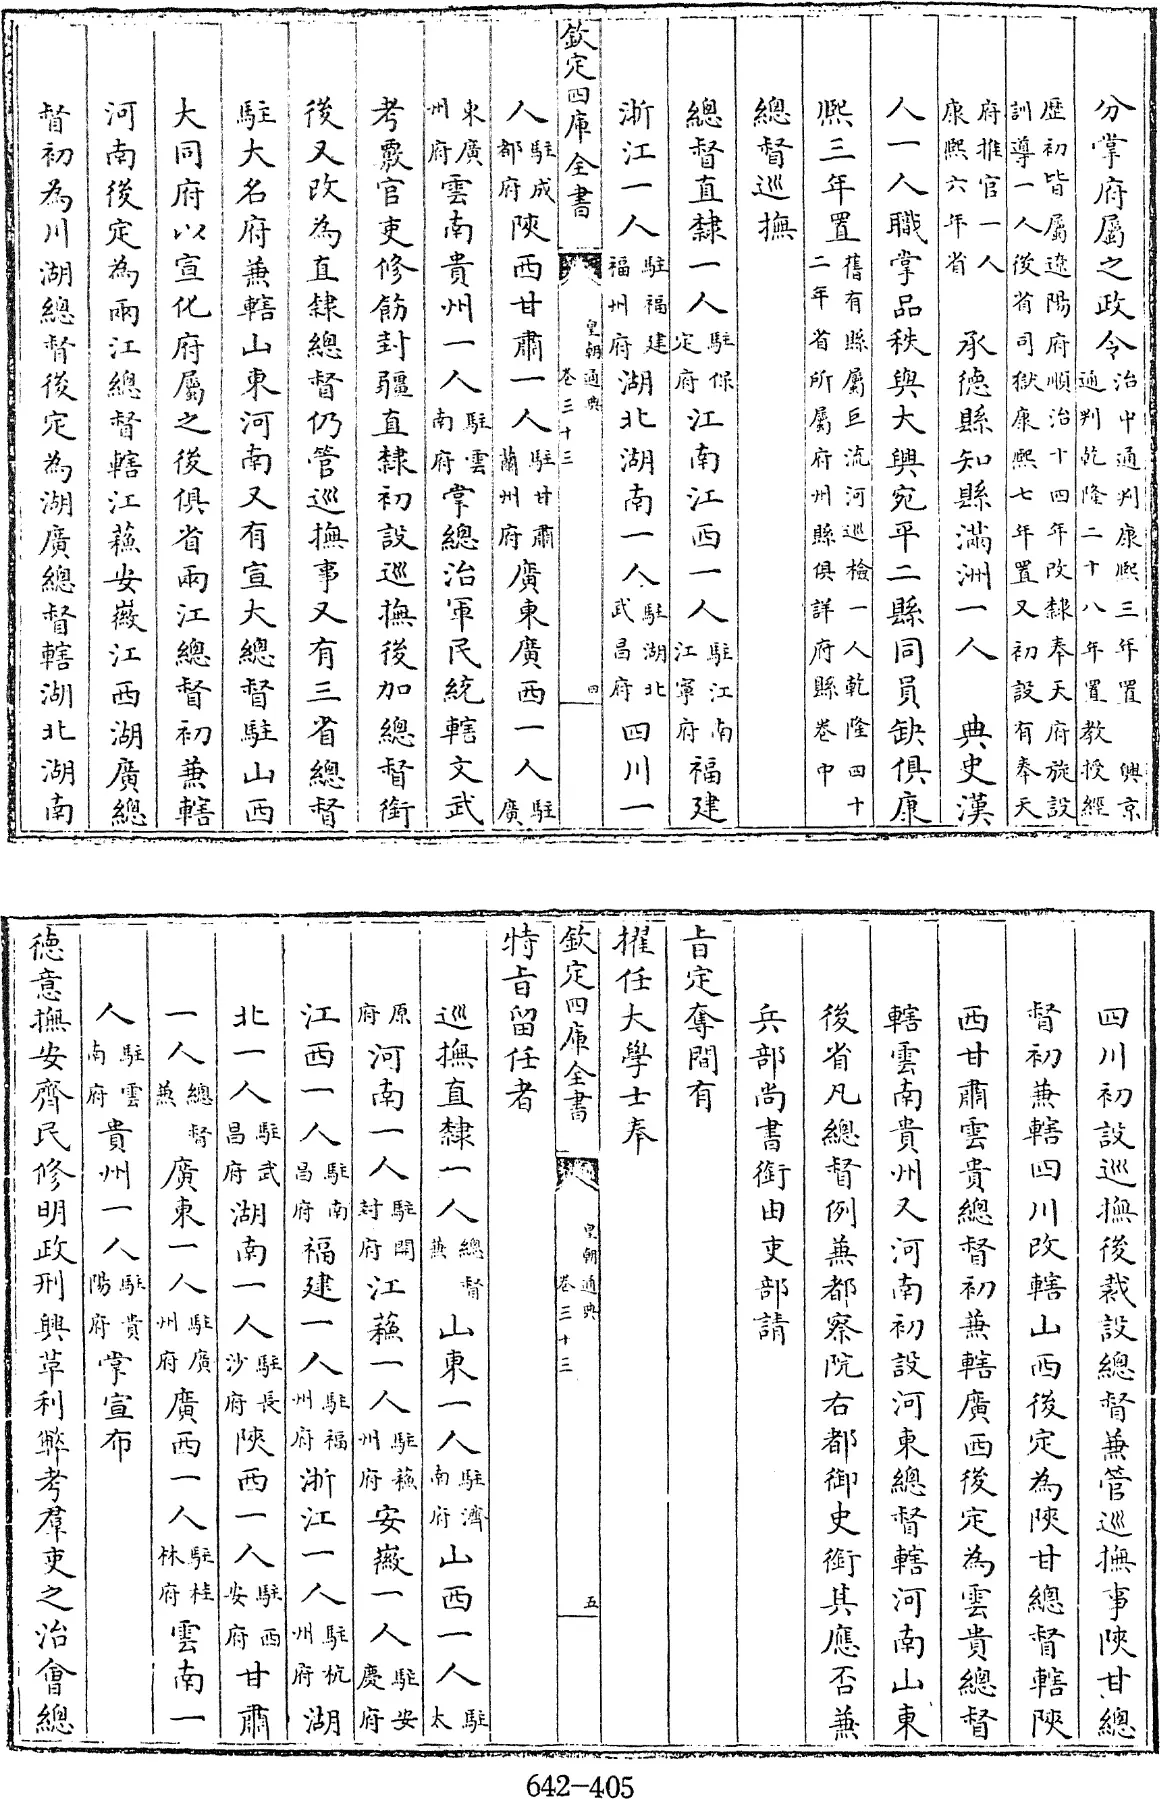 分掌府屬之政令治中通判康熙三年置 興京通判乾隆二十八年置教授經
歷初皆屬遼陽府順治十四年改隸奉天府旋設訓導一人後省司獄康熙七年置又初設有奉天
府推官一人康熙六年省 承德縣知縣滿洲一人 典史漢
人一人職掌品秩與大興宛平二縣同員缺俱康
熙三年置舊有縣屬巨流河巡檢一人乾隆四十二年省所屬府州縣俱詳府縣卷中
總督巡撫
總督直隸一人駐保定府江南江西一人駐江南江寧府福建
浙江一人駐福建福州府湖北湖南一人駐湖北武昌府四川一
欽定四庫全書 皇朝通典卷三十三 四
人駐成都府陝西甘肅一人駐甘肅蘭州府廣東廣西一人駐廣
東廣州府雲南貴州一人駐雲南府掌總治軍民統轄文武
考覈官吏修飭封疆直隸初設巡撫後加總督銜
後又改為直隸總督仍管巡撫事又有三省總督
駐大名府兼轄山東河南又有宣大總督駐山西
大同府以宣化府屬之後俱省兩江總督初兼轄
河南後定為兩江總督轄江蘓安徽江西湖廣總
督初為川湖總督後定為湖廣總督轄湖北湖南
四川初設巡撫後裁設總督兼管巡撫事陝甘總
督初兼轄四川改轄山西後定為陝甘總督轄陝
西甘肅雲貴總督初兼轄廣西後定為雲貴總督
轄雲南貴州又河南初設河東總督轄河南山東
後省凡總督例兼都察院右都御史銜其應否兼
兵部尚書銜由吏部請
旨定奪間有
擢任大學士奉
欽定四庫全書 皇朝通典卷三十三 五
特旨留任者
巡撫直隸一人總督兼山東一人駐濟南府山西一人駐太
原府河南一人駐開封府江蘓一人駐蘓州府安徽一人駐安慶府
江西一人駐南昌府福建一人駐福州府浙江一人駐杭州府湖
北一人駐武昌府湖南一人駐長沙府陝西一人駐西安府甘肅
一人總督兼廣東一人駐廣州府廣西一人駐桂林府雲南一
人駐雲南府貴州一人駐貴陽府掌宣布
德意撫安齊民修明政刑興革利弊考羣吏之治會總
642-405